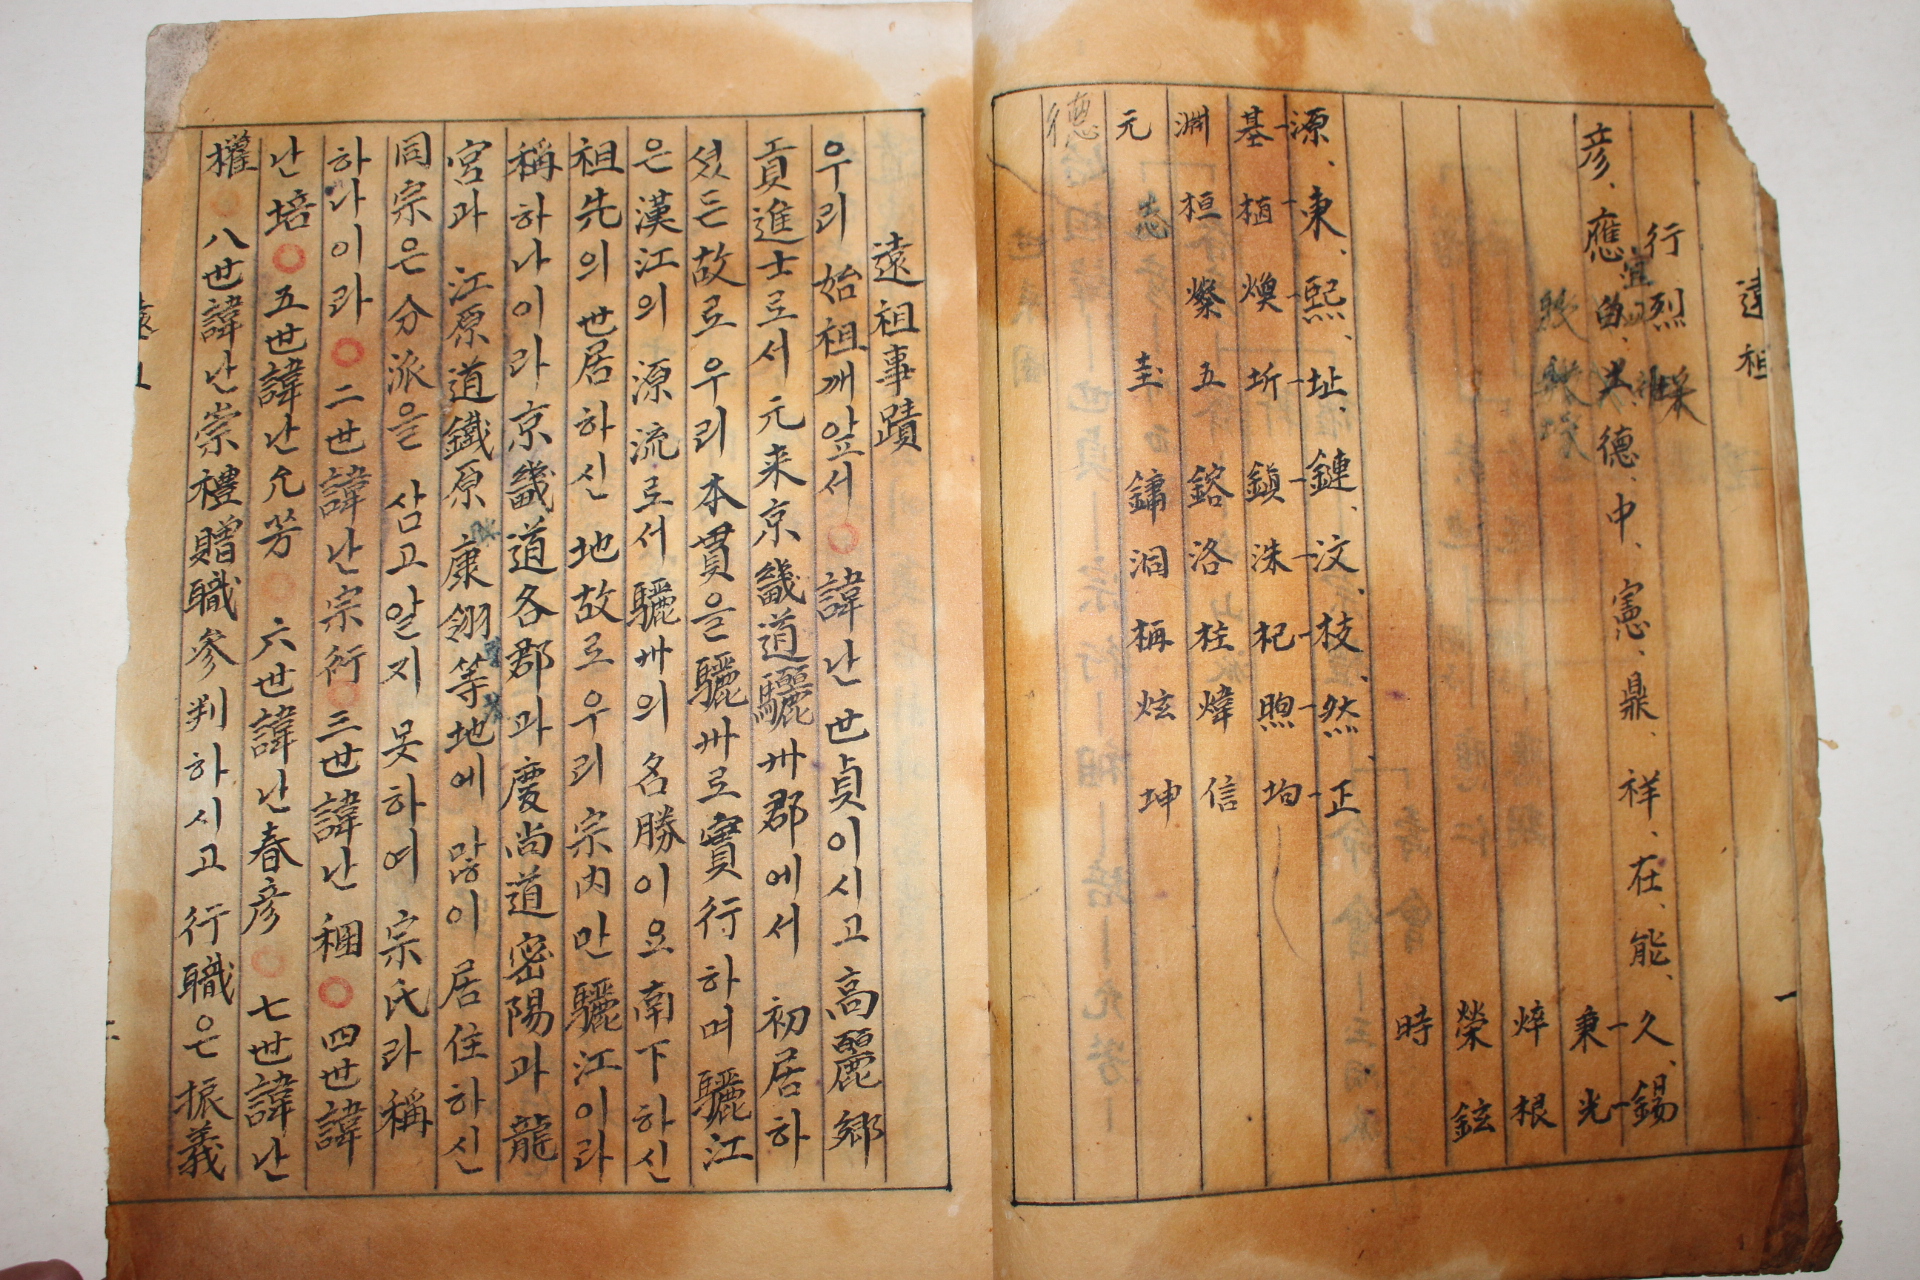 遠祖
行烈
彦、應、
德、中、憲、鼎、祥、在、能、久、錫
秉 光
焠 根
榮 鉉
時
源、東、熙、址、鏈、汶、枝、然、正
基 植 煥 圻 鎭 洙 杞 煦 均
淵 桓 燦 五 鎔 洛 桂 煒 信
元 志 圭 鏞 泂 柄 炫 坤
德
遠祖事蹟
우리 始祖깨앞서 ○ 諱난 世貞이시고 高麗鄕
貢進士로서 元来京畿道驪州郡에서 初居하
셨든故로우리本貫을驪州로實行하며 驪江
은漢江의 源流로서驪州의名勝이요南下하신
祖先의世居하신 地故로우리宗內만驪江이라
稱하나이라京畿道各郡과慶尙道密陽과龍
宮과 江原道鐵原 康翎等地에 많이居住하신
同宗은分派을 삼고알지못하여 宗氏라稱
하나이라○二世諱난宗行○三世諱난稇○四世諱
난培○五世諱난允芳○六世諱난春彦○七世諱난
權○八世諱난崇禮贈職參判하시고行職은振義